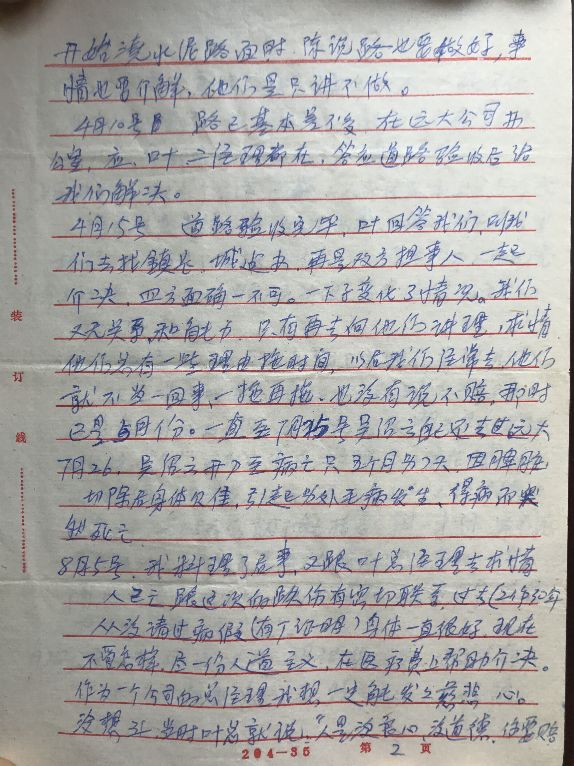 开始浇水泥路面时，陈说路也要做好，事
情也要介解，他们是只讲不做。
4月10号 路已基本，在远大公司办
公室，应、叶二位理都在，答应道路验收后给
我们解决。
4月15号 道路验收完毕，叶回答我们，叫我
们去找镇长、城建办，再是双方担事人，一起
介决，四方面确一不可。一下子变化了情况。我们
又无关系和能力，只有再去向他们讲理，求情
他们总有一些理由拖时间，以后我们经常去，他们
就不当一回事，一拖再拖，也没有说不赔，那时
已是5月份。一直至7月25号吴
7月26，吴 开刀至病亡只五个月另7天，因脾脏
切除后身体，引起 处毛病发生，得病而
死亡
8月5号，我料理了后事，又跟叶总经理去求情
人已亡 跟这次的 伤有密切联系，过去(21年)30年
从没请过病假(有厂证明)身体一直很好，现在
不管怎样，尽一份人道主义，在医药费上帮助介决。
作为一个公司的总经理我想一定能发之慈悲心。
没想到，当时叶总就说，“人是没良心，没道德，你要赔
装
订
线
204—35 第2页